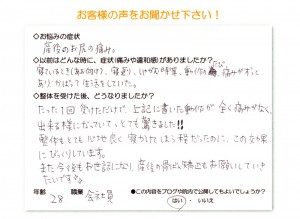 お客様の声をお聞かせ下さい！
◇お悩みの症状
産後のお尻の痛み。
◇以前はどんな時に、症状(痛みや違和感)がありましたか？
寝ているとき(あお向け)、寝返り、いすなど 動作のたび、痛みがずっと
あり、かばって生活をしていた。
◇整体を受けた後、どうなりましたか？
たった1回受けただけで、上記に書いた動作が全く痛みがなく、
出来る様になっていて、とても驚きました!!
整体もとても心地良く寝てしまう程だったのに、この効果
にびっくりしています。
また今後もお世話になり、産後の骨ばん矯正もお願いしていき
たいです。
年齢 28 職業 会社員
●この内容をブログや院内で公開してもよいでしょうか？
はい ・ いいえ